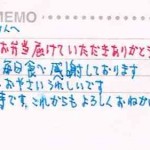 MEMO
んへ
お弁当届けていただきありがと
毎日食べ感謝しております
おやさいうれしいです
きです。これからもよろしくおねがい